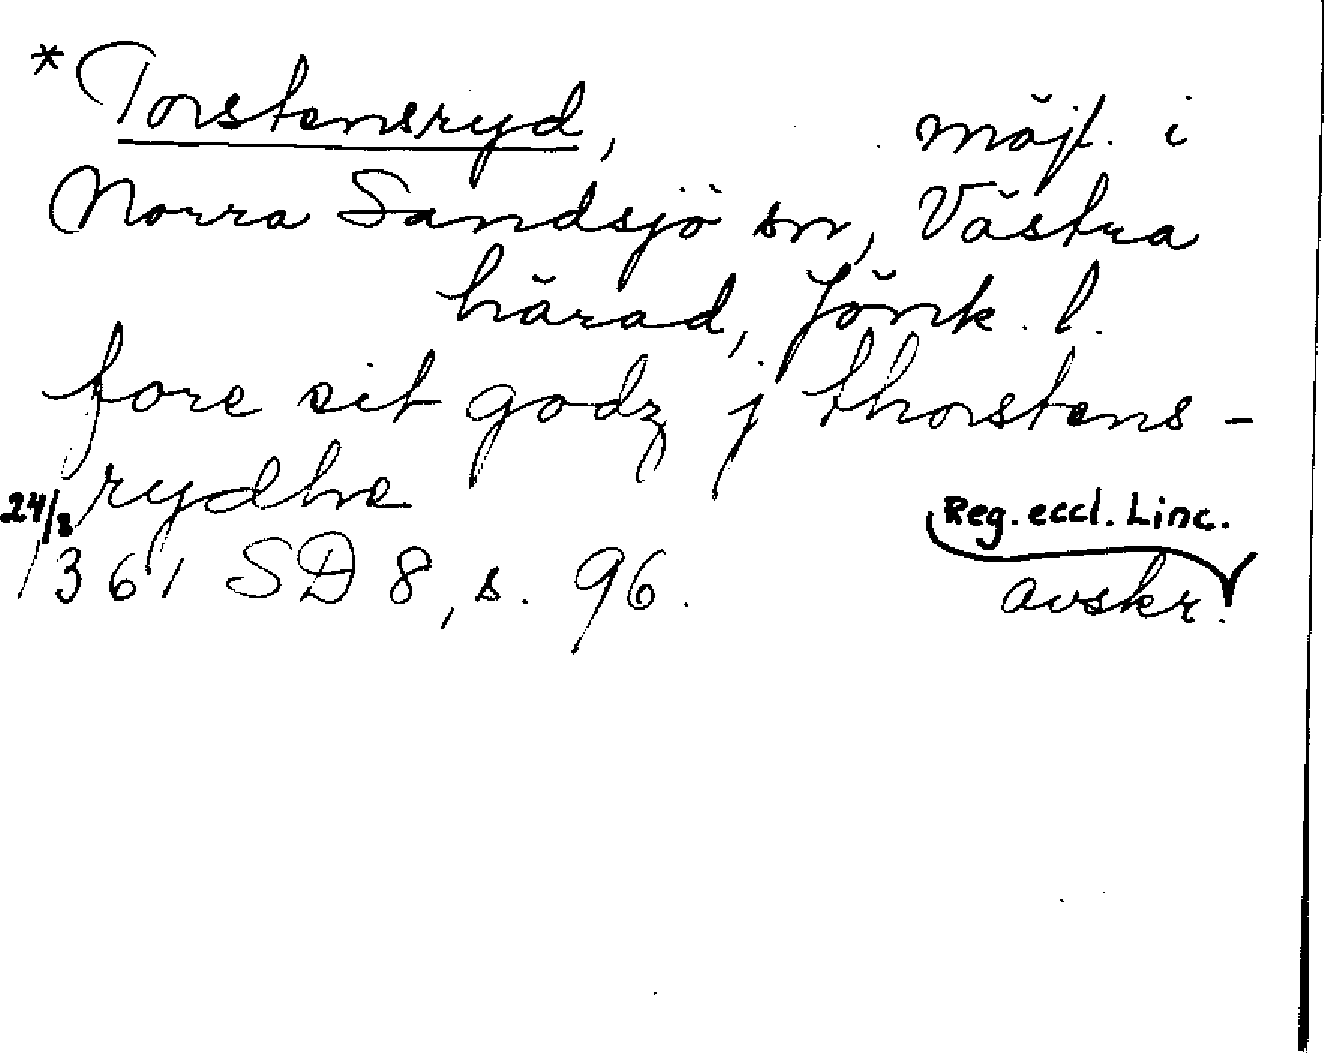 *Torstensryd, möjl. i
Norra Sandsjö sn, Västra
härad, Jönk. l.
fore sit godz j thorstens-
rydhe
24/8 Reg. eccl. Linc.
1361 SD 8, s. 96. avskr.